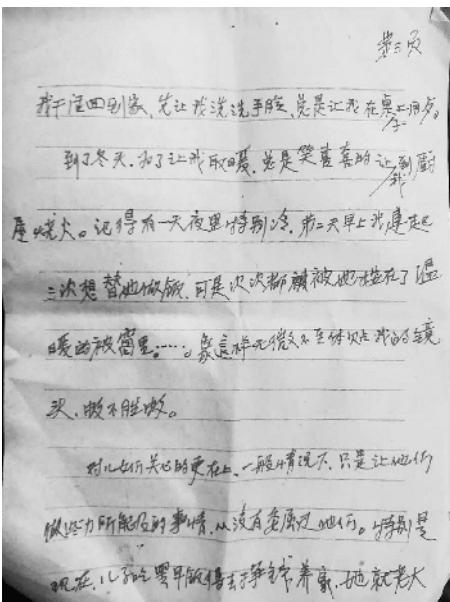 第三页
我干活回到家，先让我洗洗手脸，总是让我在桌上用与。
坐
到了冬天，为了让我取暖，总是笑喜喜的让到厨
我
屋烧火。记得有一天夜里特别冷，第二天早上我连起
三次想替她做饭，可是次次都被她捂在了温
暖的被窝里。……。象這样无微不至体贴我的镜
头，数不胜数。
对儿女们关心的更在上，一般情况下，只是让他们
做些力所能及的事情，从没有过他们。特别是
现在，儿子吃罢早饭得去挣钱养家，她就老大